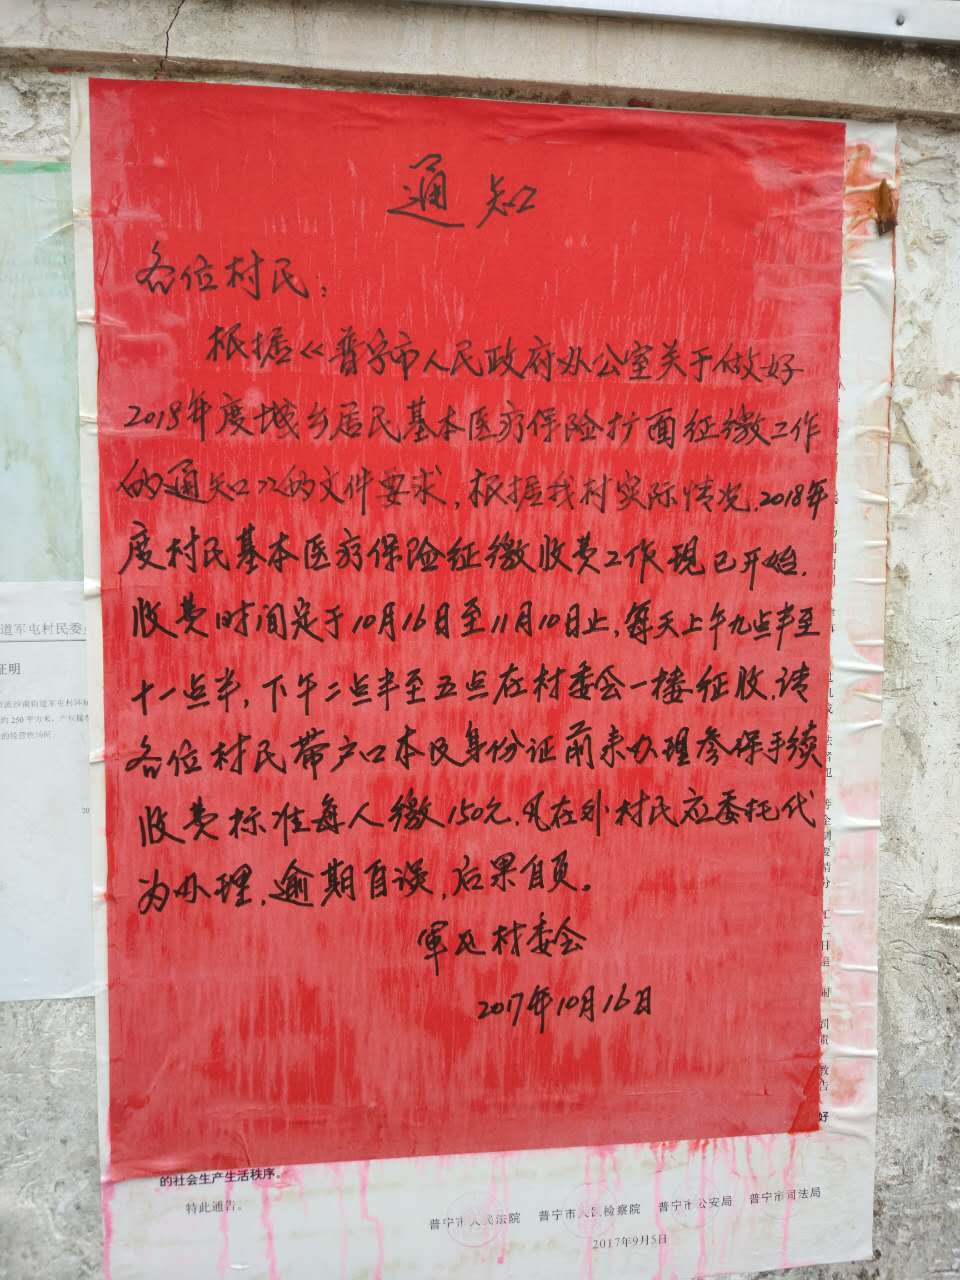 通知
各位村民：
根据《普宁市人民政府办公室关于做好
2018年度城乡居民基本医疗保险扩面征缴工作
的通知》的文件要求，根据我村实际情况，2018年
度村民基本医疗保险征缴收费工作现已开始，
收费时间定于10月16日至11月10日止，每天上午九点半至
十一点半，下午二点半至五点在村委会一楼征收，请
各位村民带户口本及身份证前来办理参保手续
收费标准每人缴150元，凡在外村民应委托代
为办理，逾期自误，后果自负。
军屯村委会
2017年10月16日
道军屯村民委
证明
的社会生产生活秩序。
特此通告。
普宁市人民法院 普宁市人民检察院 普宁市公安局 普宁市司法局
2017年9月5日